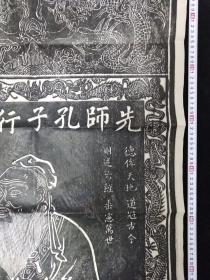 先師孔子行
德侔天地 道冠古今
刪述六經 垂憲萬世